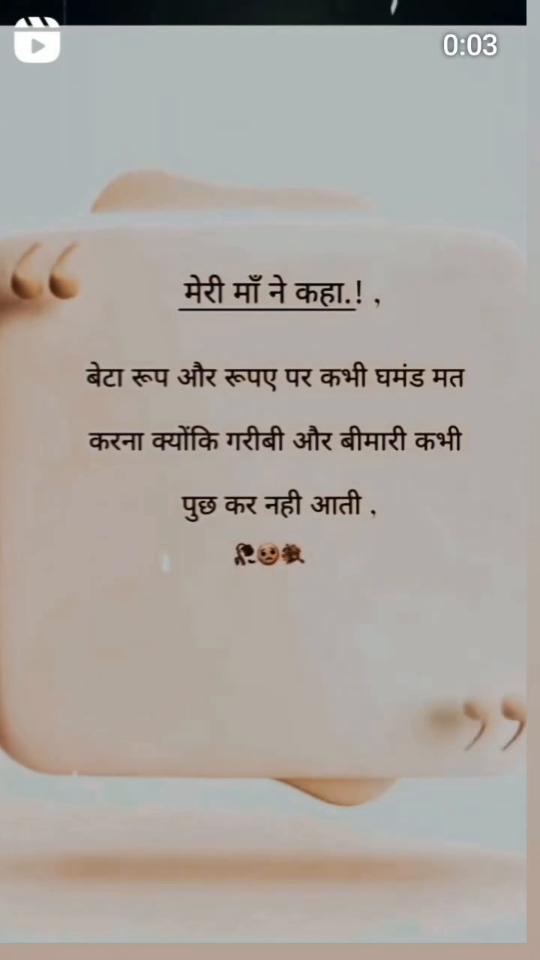 0:03
मेरी माँ ने कहा.! ,
बेटा रूप और रूपए पर कभी घमंड मत
करना क्योंकि गरीबी और बीमारी कभी
पुछ कर नही आती ,
🥀🥺🥀